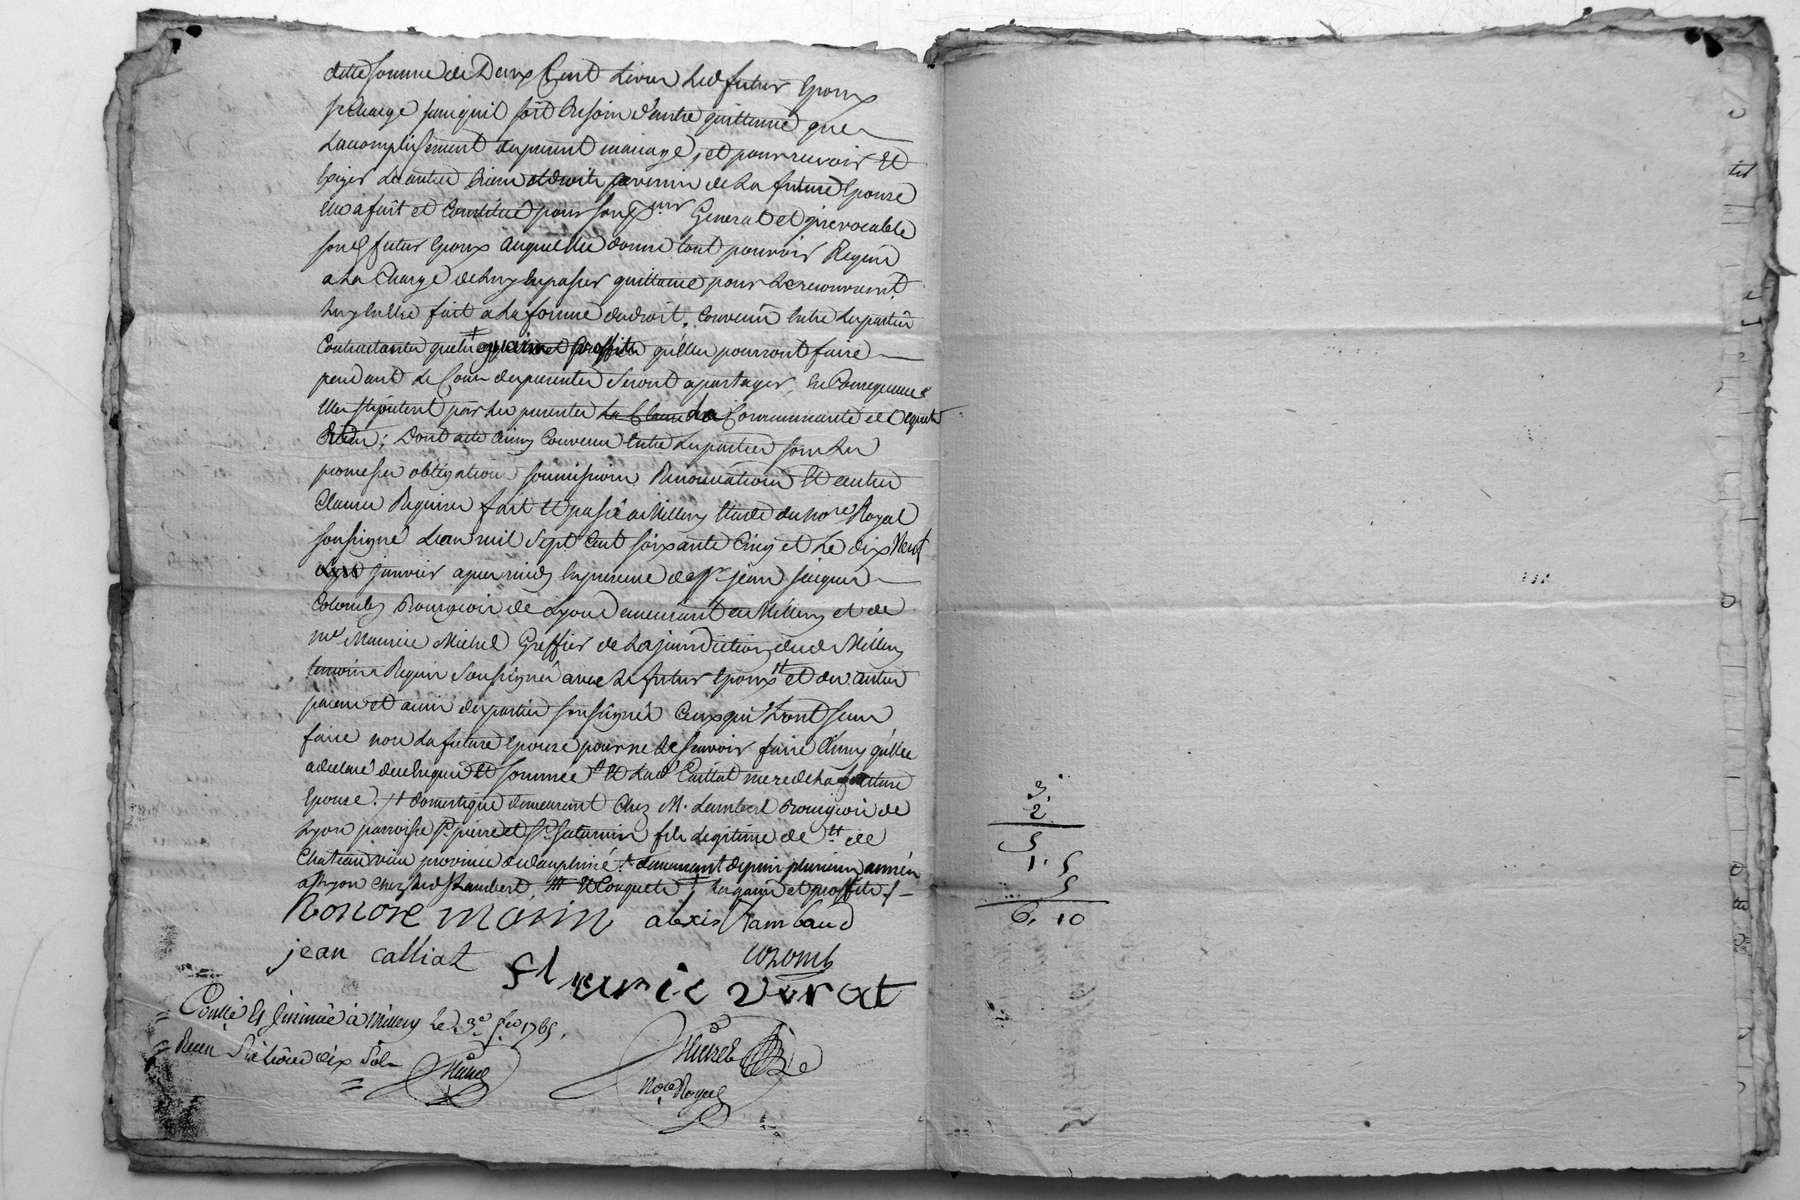 dite somme de Deux Cent Livres Led futur Epoux
se charge sans quil soit besoin d'autre quittance que
Lacomplissement du present mariage, et pour recevoir Et
Exiger Les autres biens et droits a venir de La future Epouse
Elle a fait et Constitué pour son General et irrevocable
sond futur Epoux auquel elle donne tout pouvoir Requis
a La Charge de Luy En passer quittance pour Le recouvrant
Luy Estre fait a La forme du droit. Convenu Entre Les parties
Contractantes que Les qu'elles pourront faire
pendant Le Cours des presentes seront a partager, En Consequence
Elles stipulent par Les presentes La Communauté
: Dont acte ainsy Convenu Entre Les parties sous Les
promesses obligations soumissions Renonciations Et autres
Clauses Requises fait Et passé a Millery Etude du no.re Royal
soussigné L'an mil sept Cent soixante Cinq et Le dix Neuf
janvier apres midy En presence de Sr jean jacques
Colomb Bourgeois de Lyon Demeurant a Millery et de
me Maurice Michel Greffier de La jurisdiction dud Millery
temoins Requis soussignés avec Le futur Epoux et des autres
parens et amis des parties soussignés Ceux qui L'ont sceu
faire non La future Epouse pour ne Le scavoir faire Ainsy qu'elle
a declaré de ce Enquise Et sommée Et Lad Calliat mere de La future
Epouse. domestique demeurant Chez M. Lambert Bourgeois de
Lyon parroisse St pierre et St Saturnin fils Legitime de
Chateauvieux province de dauphiné. demeurant depuis plusieurs années
a Lyon Chez Led S Lambert, Et Conquets; Les gains et proffits
Honoré marin alexis Rambaud
jean calliat colomb
fleurie verat
Conllé Et Insinué à Millery Le 3e feo 1765.
Receu Six Livres dix Sols
No.re Royal
3.
2
5
1. 5
5
6. 10